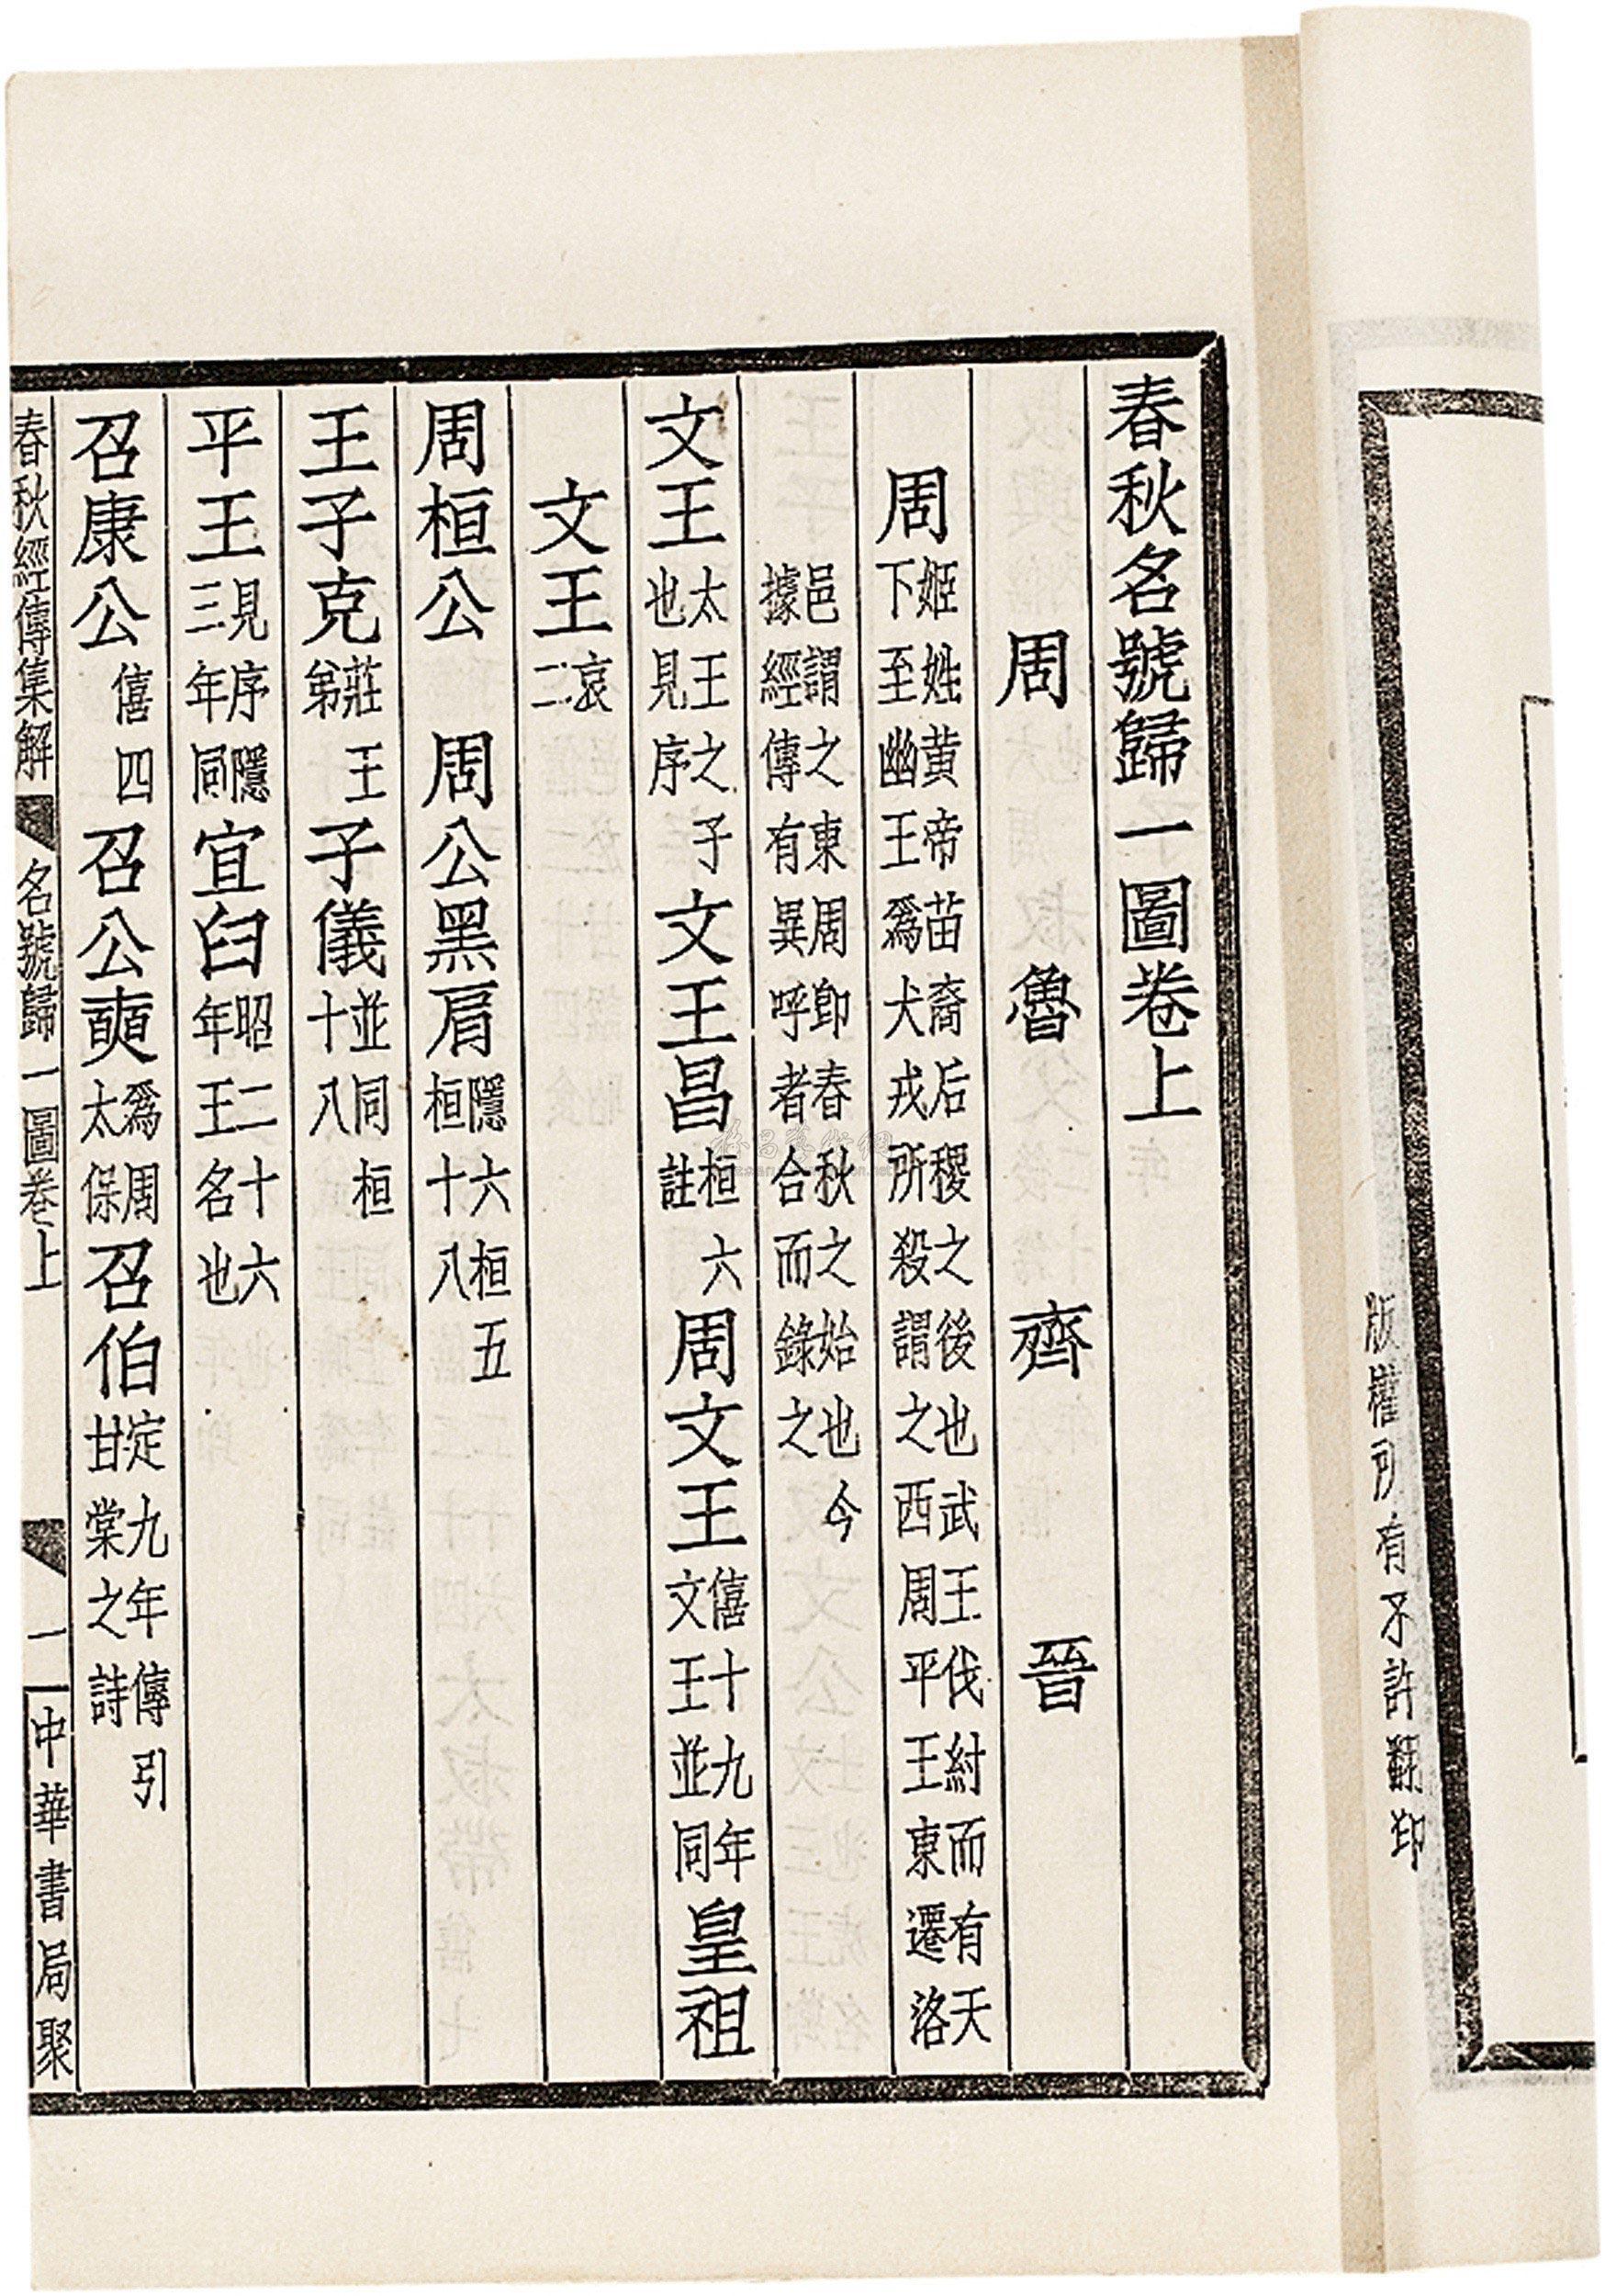 版權所有不許翻印
春秋名號歸一圖卷上
周 魯 齊 晉
周 姬姓黃帝苗裔后稷之後也武王伐紂而有天
下至幽王爲犬戎所殺謂之西周平王東遷洛
邑謂之東周卽春秋之始也今
據經傳有異呼者合而錄之
文王 太王之子 也見序 文王昌 桓六 註 周文王 僖十九年 文王並同 皇祖
文王 哀二
周桓公 周公黑肩 隱六桓五 桓十八
王子克 莊王 弟 子儀 並同桓 十八
平王 見序隱 三年同 宜臼 昭二十六 年王名也
召康公 僖四 召公奭 爲周 太保 召伯 定九年傳引 甘棠之詩
春秋經傳集解 名號歸一圖卷上 一 中華書局聚